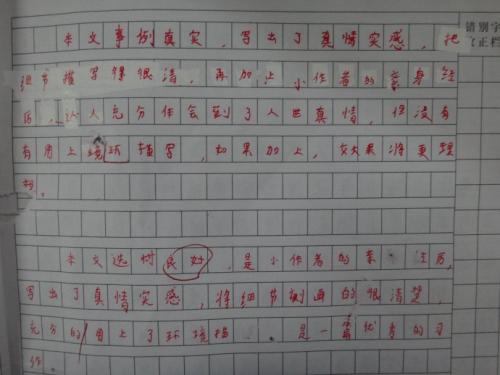 错别字
订正栏
本文事例真实，写出了真情实感，把
细节描写得很清，再加上小作者的亲身经
历，让人充分体会到了人世真情，但没有
有用上环境描写，如果加上，效果将更理
想。
本文选材良好，是小作者的亲 经历，
写出了真情实感，将细节刻画的很清楚，
充分的用上了环境描 是一篇优秀的习
作。